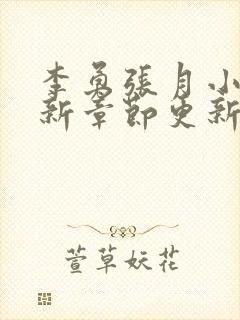 李勇張月小
新章節更新
萱草妖花